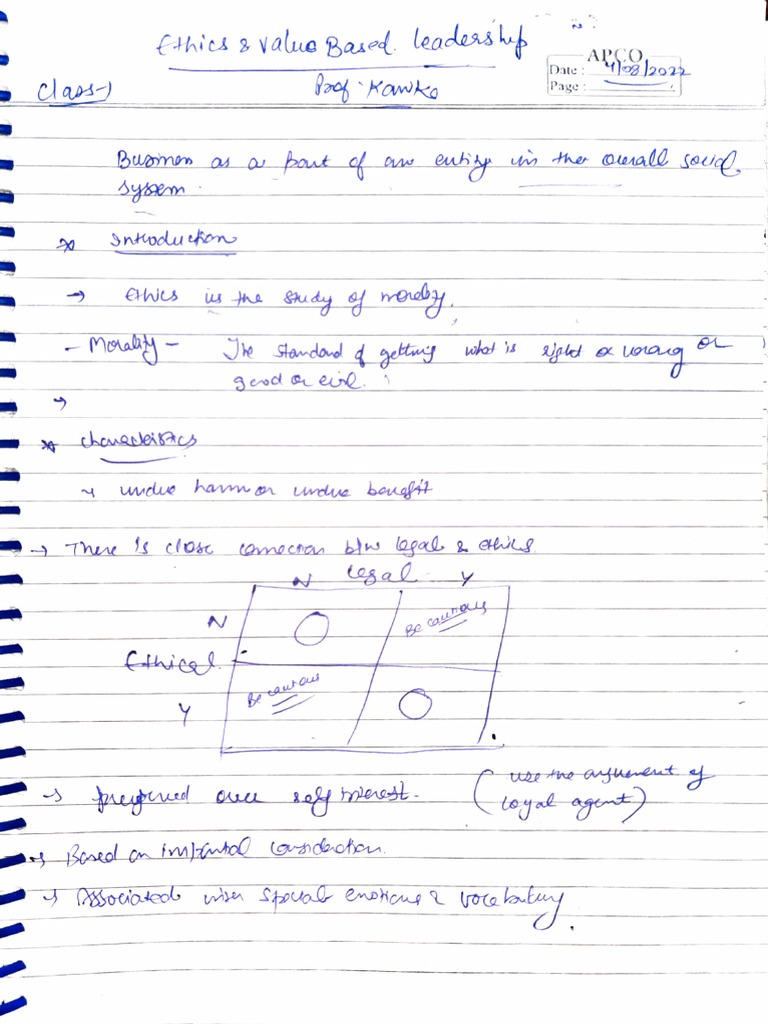 Ethics & Value Based leadership
APCO
Date: 4/08/2022
Page:
Class-1
Prof.
Business as a part of an entity in the overall social
system.
* Introduction
→ Ethics is the study of morality.
- Morality - The standard of getting what is right or wrong or
good or evil.
→
* Characteristics
→ undue harm or undue benefit
→ There is close connection b/w legal & ethics
Legal
N Y
N
Be cautious
Ethical
Be cautious
Y
→ preferred over self interest. (use the argument of
loyal agent)
→ Based on impartial consideration.
→ Associated with special emotions & vocabulary.